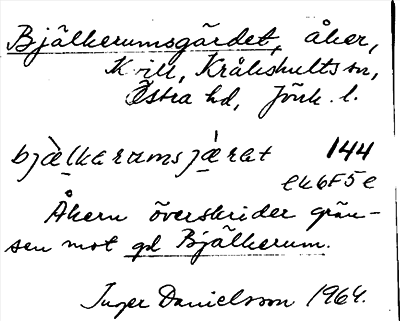 Bjälkerumsgärdet, åker,
Kvill, Kråkshults sn,
Östra hd, Jönk. l.
bjælkarumsjærat 144
ek6F5e
Åkern överskrider grän-
sen mot gd Bjälkerum.
Inger Danielsson 1964.